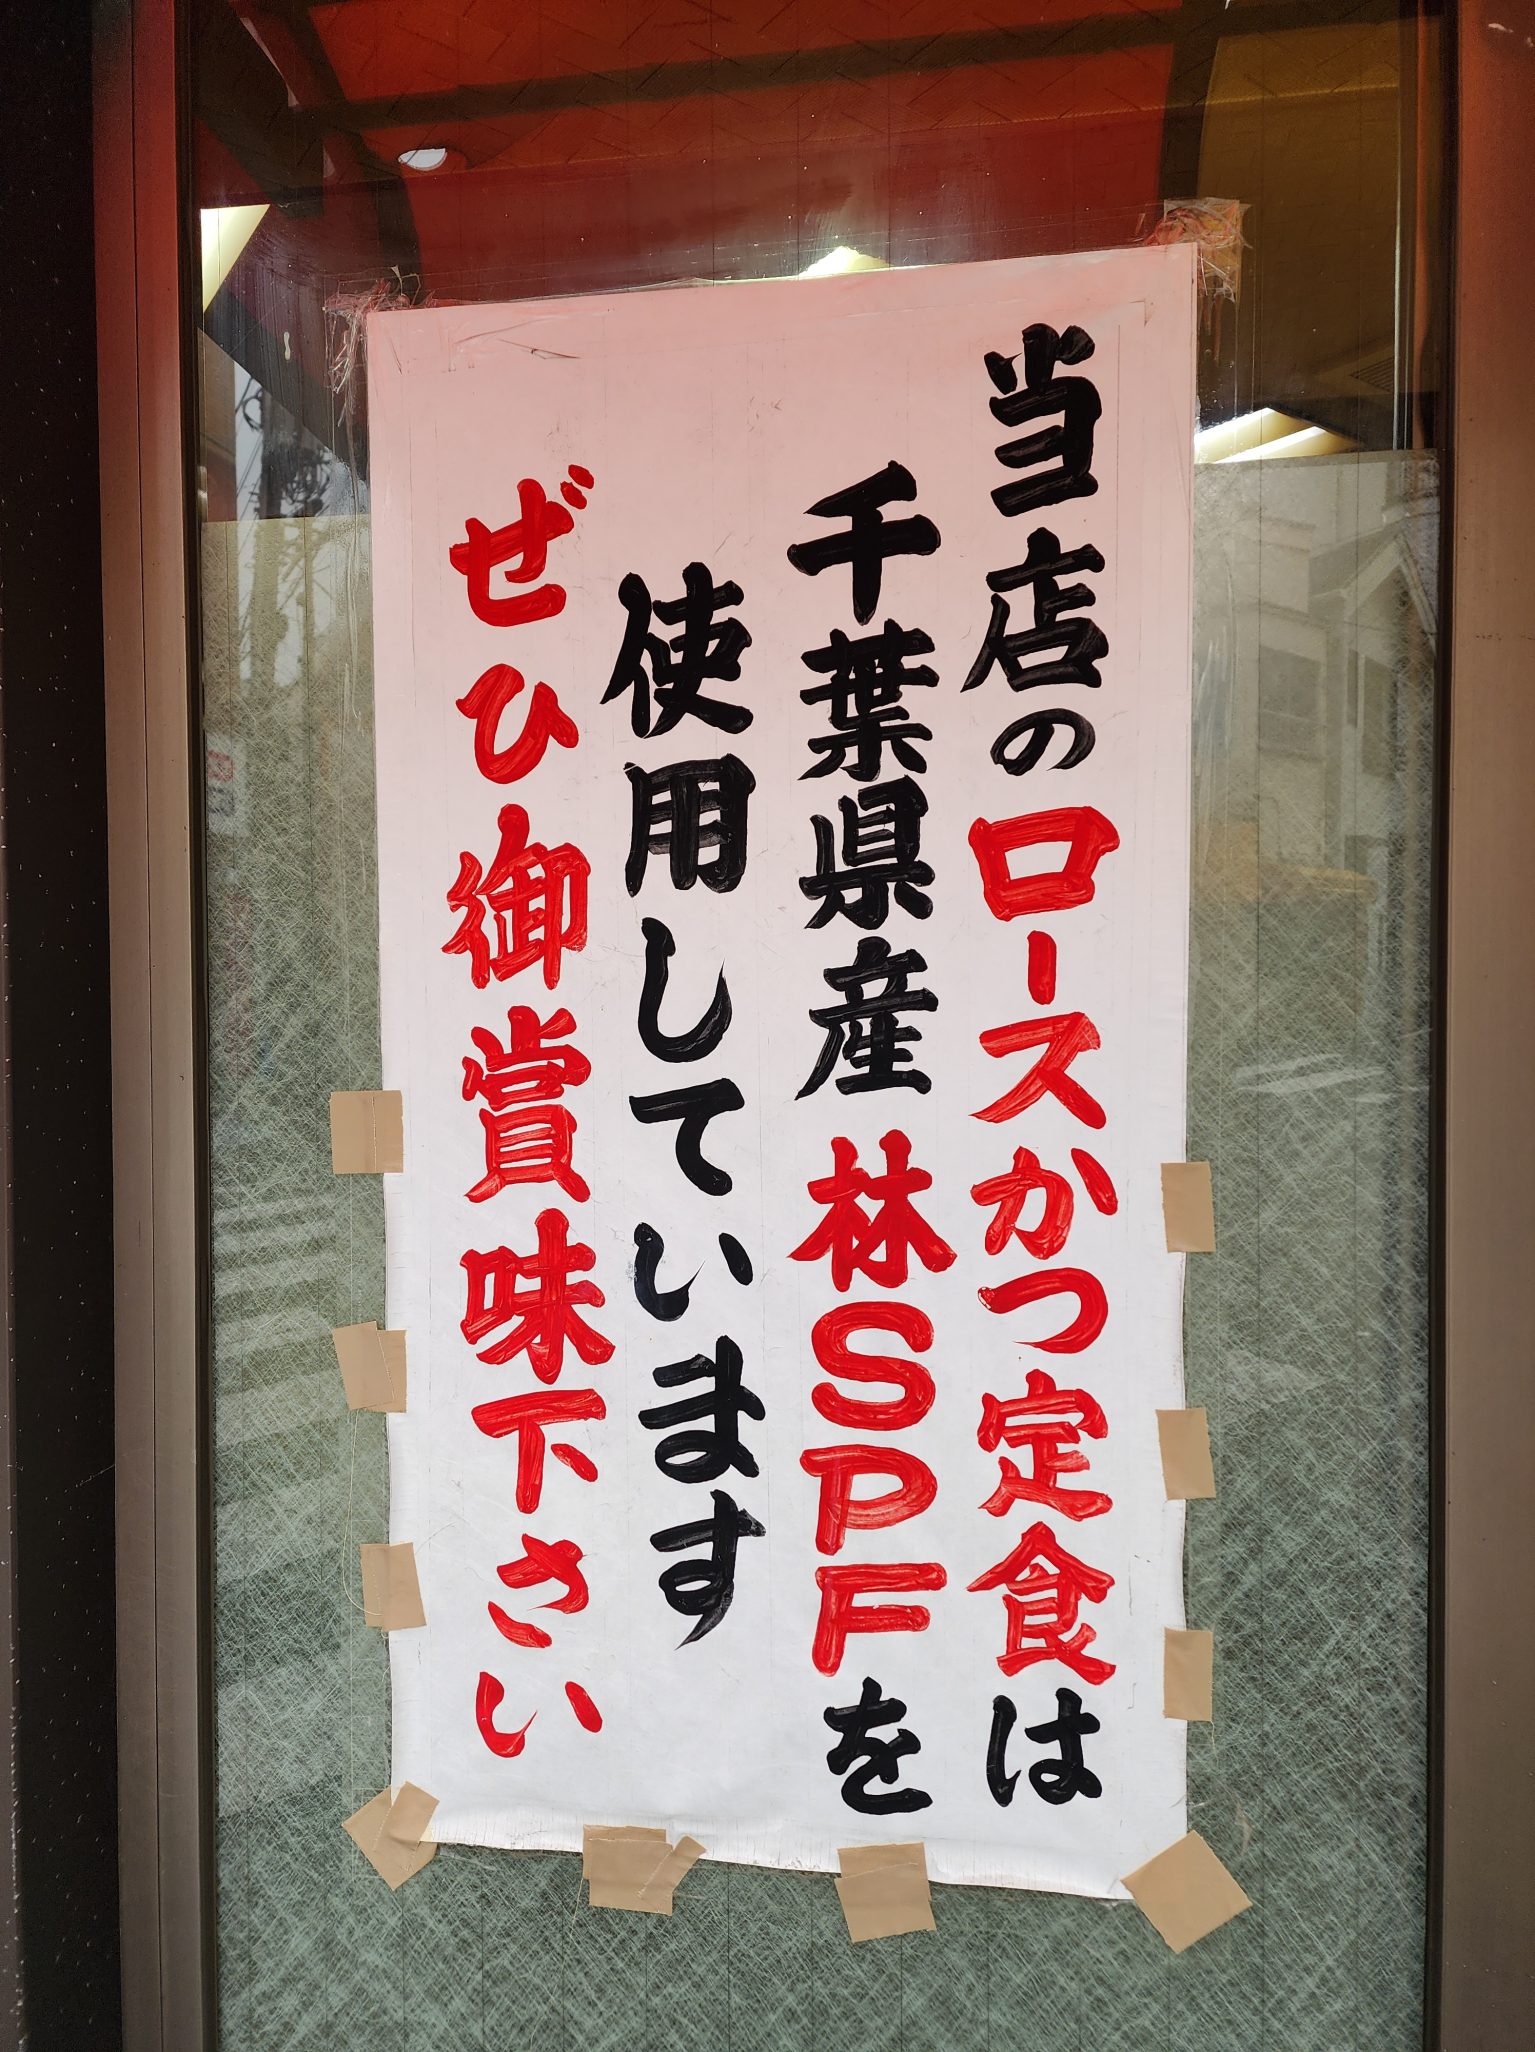 当店のロースかつ定食は
千葉県産 林SPFを
使用しています
ぜひ御賞味下さい